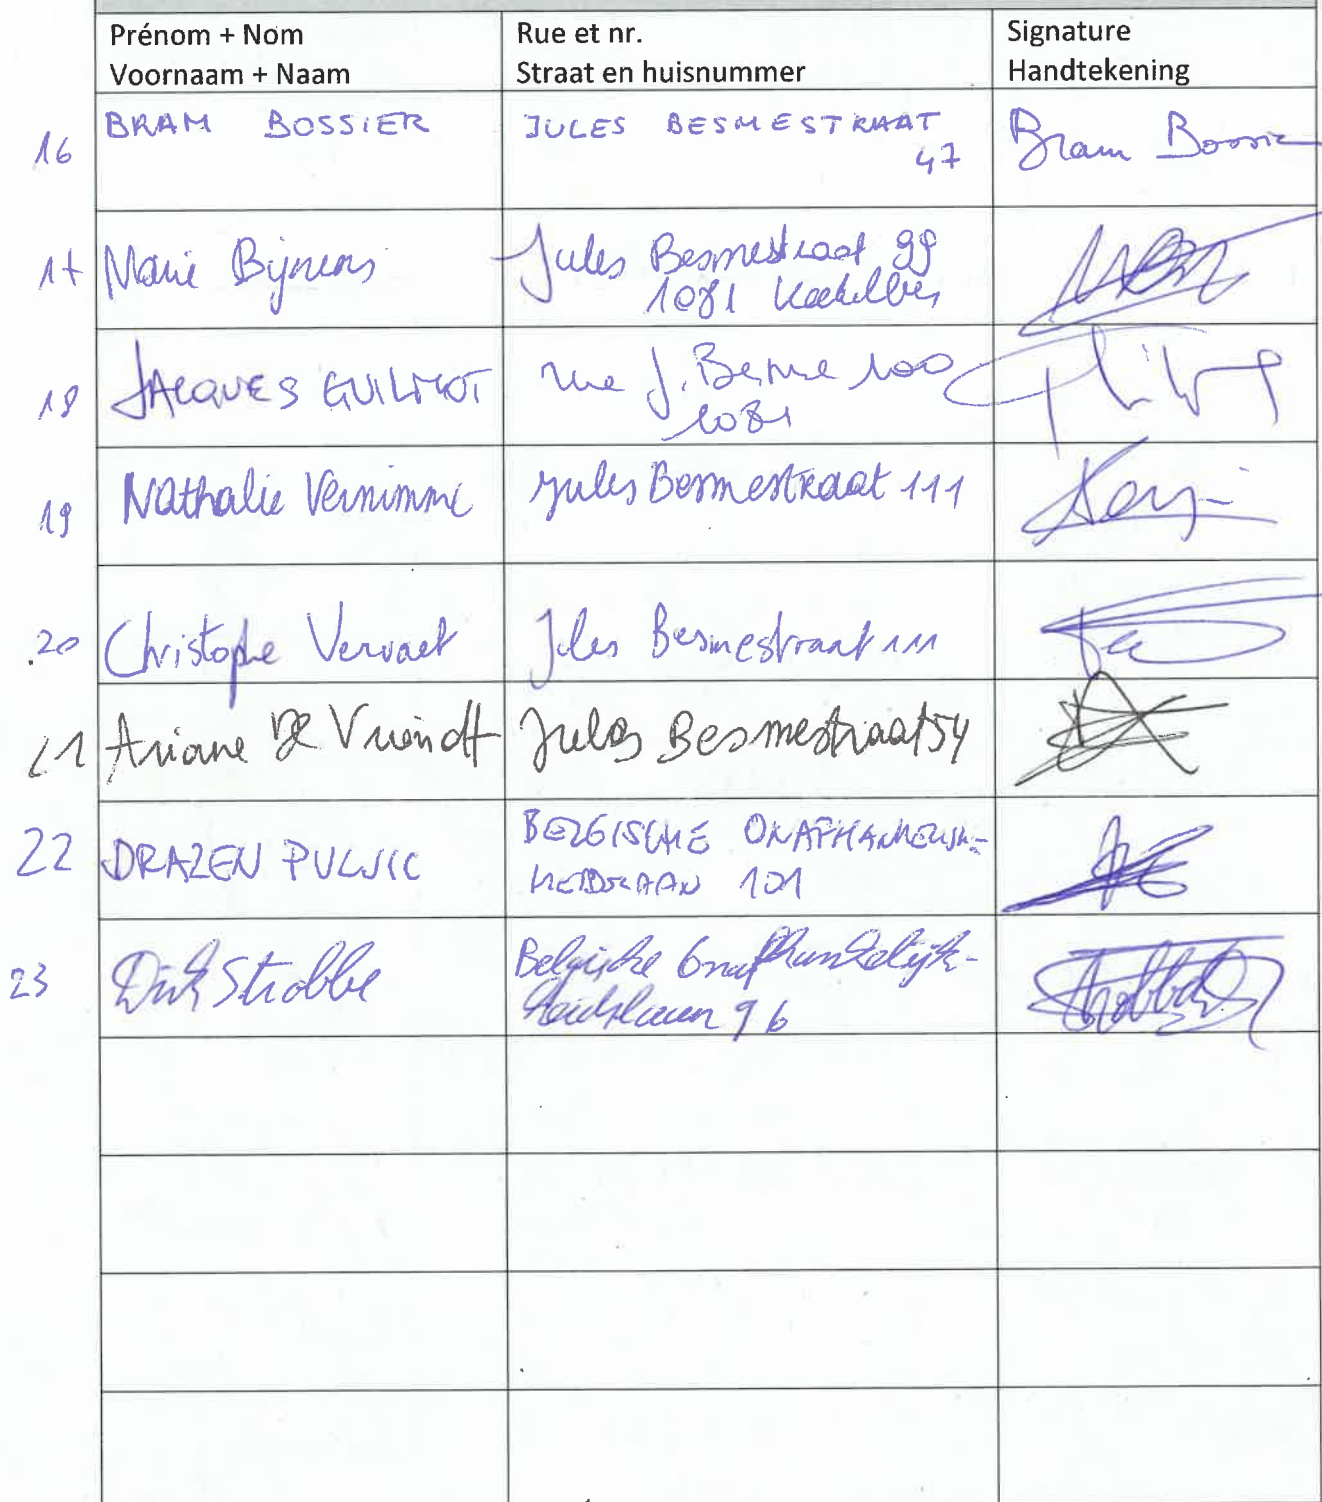 Prénom + Nom
Voornaam + Naam
Rue et nr.
Straat en huisnummer
Signature
Handtekening
16
BRAM BOSSIER
JULES BESMESTRAAT
47
Bram Bossier
17
Marie Bijnens
Jules Besmestraat 99
1081 Koekelberg
18
JACQUES GUILMOT
rue J. Besme 100
1081
19
Nathalie Vernimme
Jules Besmestraat 111
20
Christophe Vervaet
Jules Besmestraat 111
21
Ariane De Vriendt
Jules Besmestraat 54
22
DRAZEN PULJIC
BELGISCHE ONAFHANKELIJK-
HEIDSLAAN 101
23
Dirk Strobbe
Belgische Onafhankelijk-
heidslaan 96
Strobbe